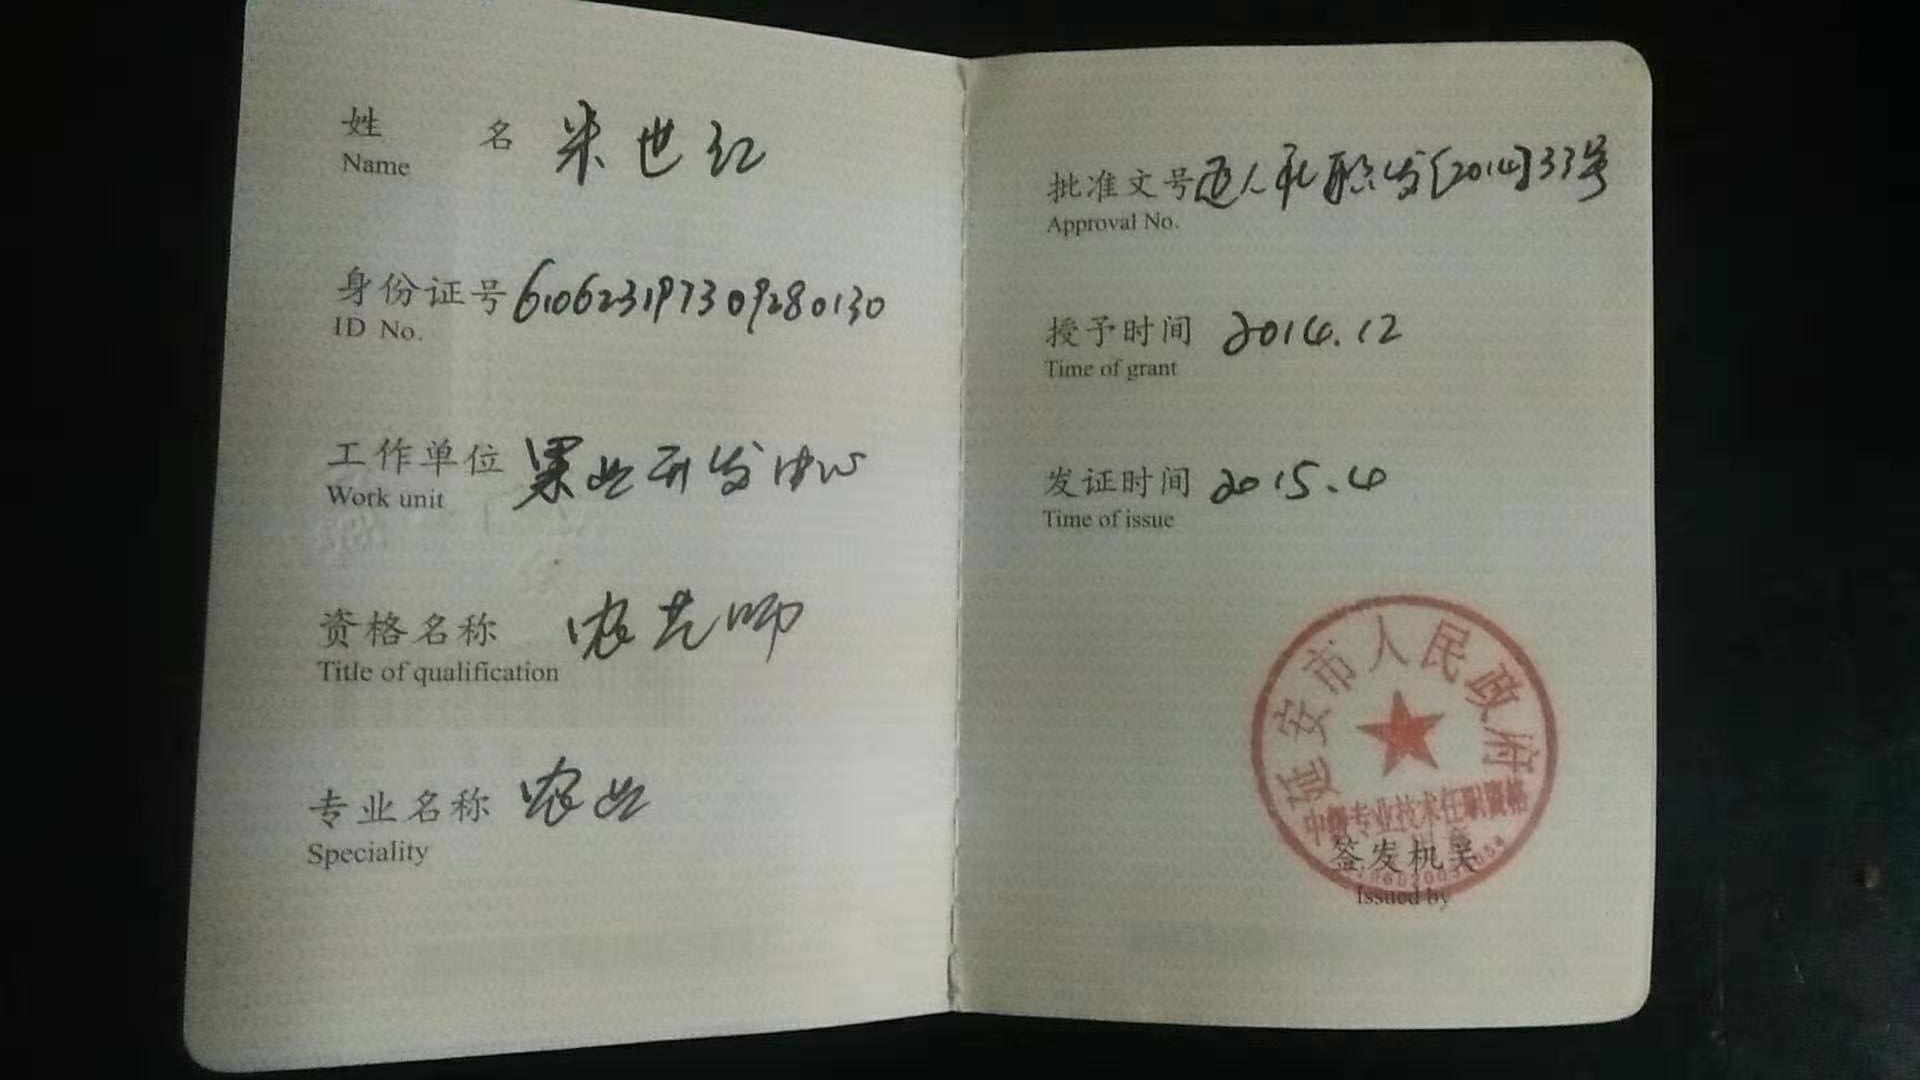 姓 名 米世红
Name
身份证号 610623197309280130
ID No.
工作单位 果业开发中心
Work unit
资格名称 农艺师
Title of qualification
专业名称 农业
Speciality
批准文号 延人社职发〔2014〕33号
Approval No.
授予时间 2014.12
Time of grant
发证时间 2015.4
Time of issue
延安市人民政府
中级专业技术任职资格
签发机关
Issued by